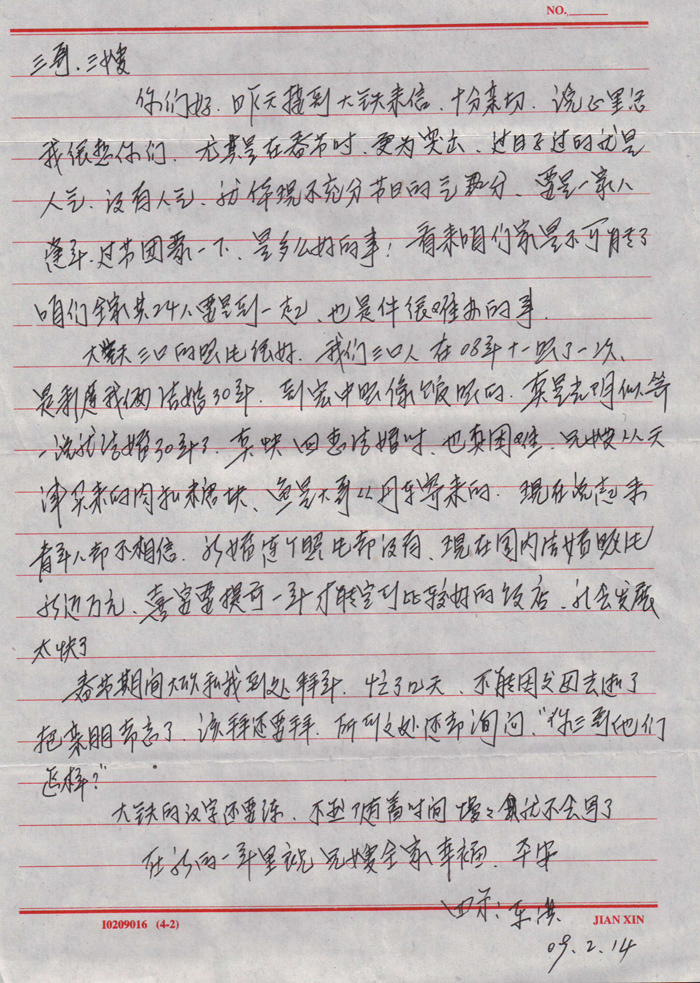 NO.
三哥、三嫂
你们好．昨天接到大铁来信，十分亲切．说心里话
我很想你们．尤其是在春节时，更为突出，过日子过的就是
人气．没有人气，就体现不充分节日的气氛．要是一家人
逢年过节团聚一下，是多么好的事！看来咱们家是不可能了
咱们全家共24人要是到一起，也是件很难办的事．
大铁三口的照片很好．我们三口人在08年十一照了一次，
是利庭我俩结婚30年．到宏中照像馆照的．真是光阴似箭
一说就结婚30年了．真快 回想结婚时，也真困难．兄嫂从天
津买来的肉和糖块、鱼是大哥从丹东寄来的．现在说起来
青年人却不相信．新婚连个照片都没有，现在国内结婚照片
就近万元，喜宴要提前一年才能定到比较好的饭店．社会发展
太快了
春节期间大欣和我到处拜年．忙了12天，不能因父母去逝了
把亲朋都忘了．该拜还要拜．所到之处还都询问，“你三哥他们
怎样？”
大铁的汉字还要练，不然随着时间慢々就不会写了
在新的一年里祝兄嫂全家幸福．平安
四弟：东洪
09.2.14
I0209016 (4-2)
JIAN XIN